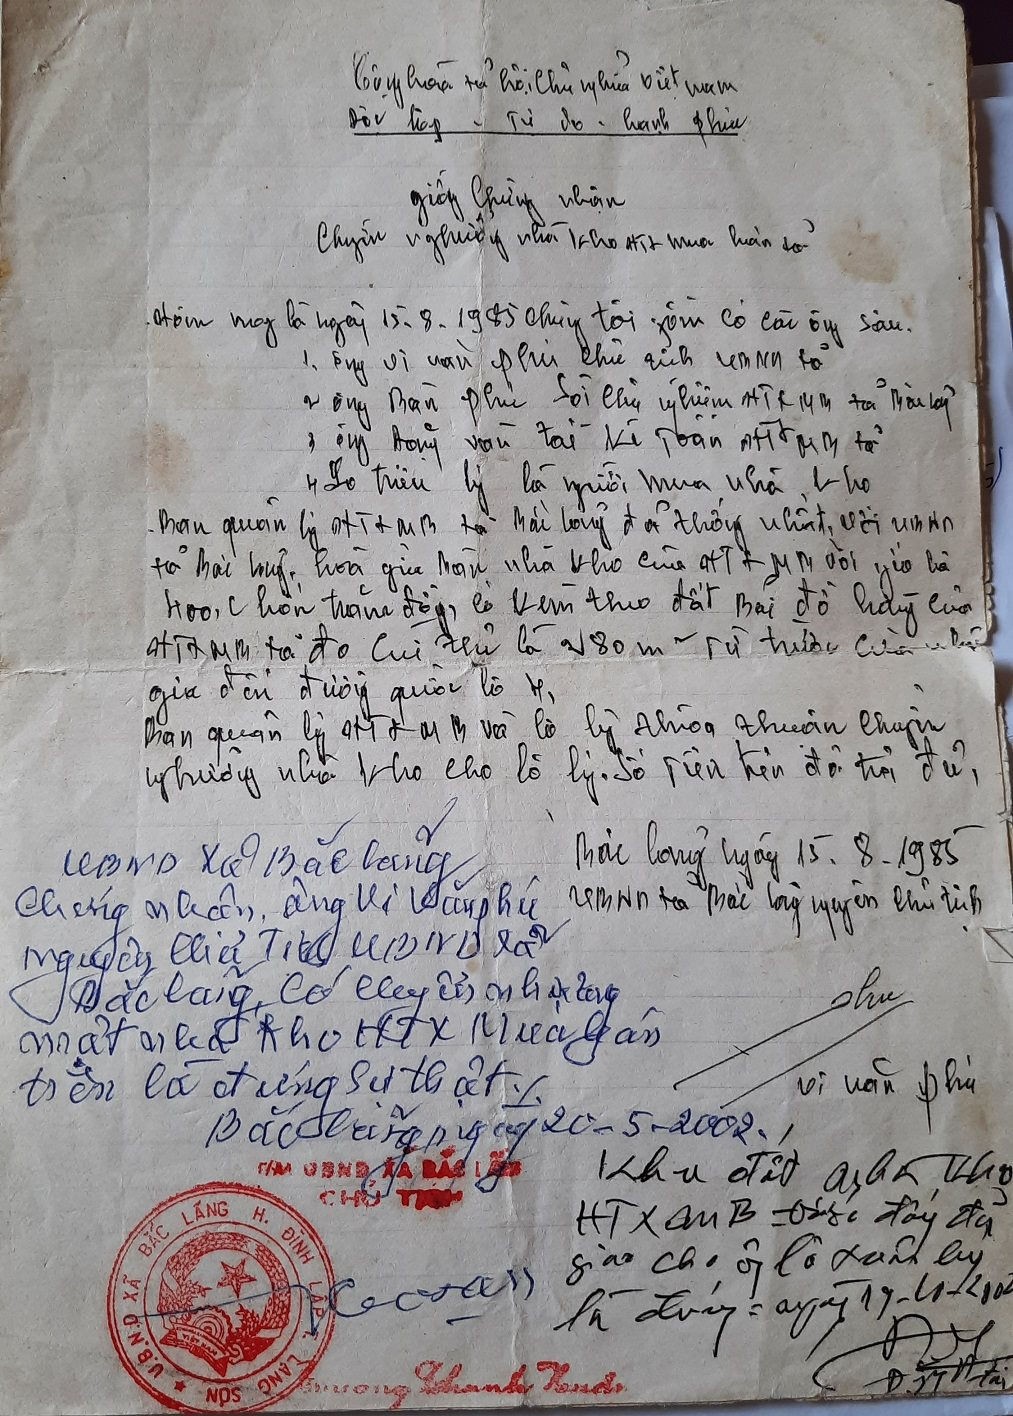 Cộng hoà xã hội chủ nghĩa việt nam
Độc lập - Tự do - hạnh phúc
giấy chứng nhận
Chuyển nghượng nhà kho HTX mua bán xã
Hôm nay là ngày 15-8-1985 chúng tôi gồm có các ông sau.
1. ông vi văn phú chủ tịch UBND xã
2 ông Bàn phúc chủ nghiệm HTXMB xã Bắc lãng
3 ông văn tài kế toán HTXMB xã
4 Lo triều lý là người mua nhà kho
Ban quản lý HTXMB xã Bắc lãng đã thống nhất với UBND
xã Bắc lãng. hoá giá bán nhà kho của HTXMB với giá là
400, bốn trăm đồng, có kèm theo đất Bãi đỗ hàng của
HTXMB xã đo cụ thể là 280m2 Từ trước cửa nhà
gia đến đường quốc lộ 4,
Ban quản lý HTXMB và lò lý thỏa thuận chuyển
nghượng nhà kho cho lò lý. Số Tiền trên đã trả đủ,
Bắc lãng ngày 15-8-1985
UBND xã Bắc lãng nguyên chủ tịch
phú
vi văn phú
UBND xã Bắc lãng
Chứng nhận, ông Vi Văn phú
nguyên chủ Tịch UBND xã
Bắc lãng, có chuyển nhượng
một nhà kho HTX Mua bán
trên là đúng sự thật./.
Bắc lãng ngày 20-5-2002.
T/M UBND XÃ BẮC LÃNG
CHỦ TỊCH
U.B.N.D XÃ BẮC LÃNG H. ĐÌNH LẬP T. LẠNG SƠN
VIỆT NAM
Khu đất nhà kho
HTXMB được đầy đủ
giao cho ô lô xuân lý
là đúng = ngày